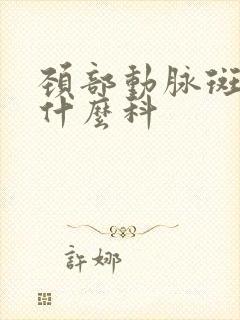 頚部動脉斑
什麼科
許娜